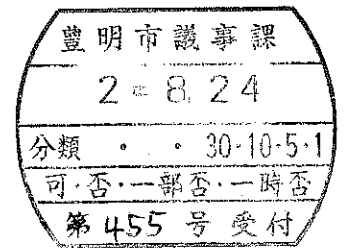 豊明市議事課
2 - 8. 24
分類 ・ ・ 30・10・5・1
可・否・一部否・一時否
第455号受付